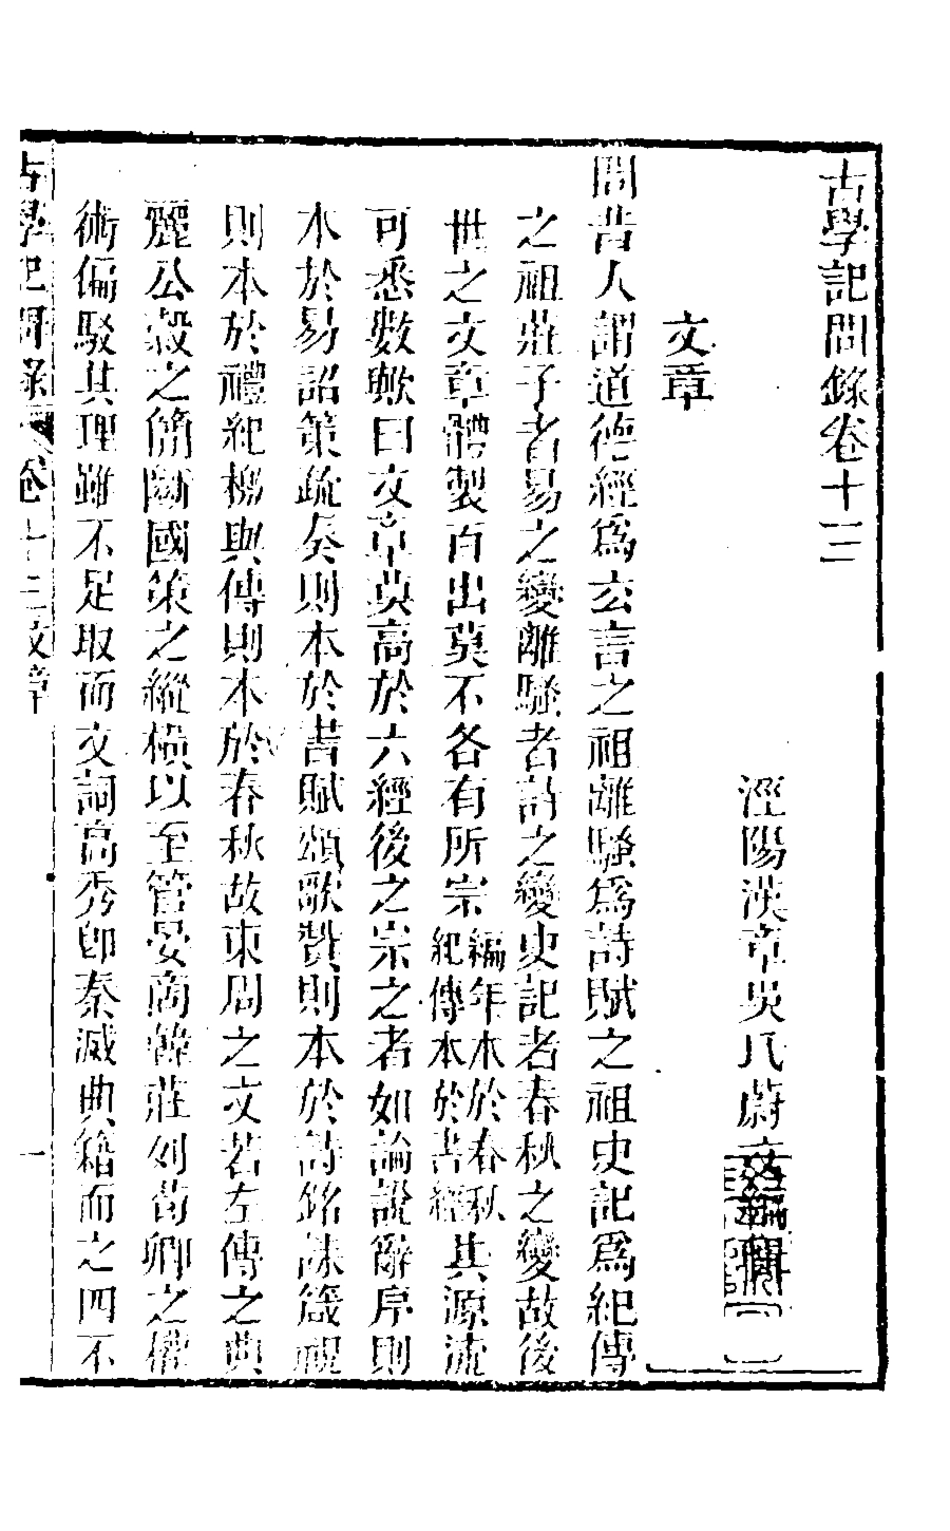 古學記問錄卷十三
涇陽洪章吳氏蔚文編輯
文章
問昔人謂道德經爲玄言之祖離騷爲詩賦之祖史記爲紀傳
之祖莊子者易之變離騷者詩之變史記者春秋之變故後
世之文章體製百出莫不各有所宗編年本於春秋紀傳本於書經其源流
可悉數歟曰文章莫高於六經後之宗之者如論說辭序則
本於易詔策疏奏則本於書賦頌歌贊則本於詩銘誄箴祝
則本於禮紀檄與傳則本於春秋故東周之文若左傳之典
麗公穀之簡斷國策之縱橫以至管晏商韓莊列荀卿之權
術偏駁其理雖不足取而文詞高秀卽秦滅典籍而之四不
古學記問錄 卷十三文章 一